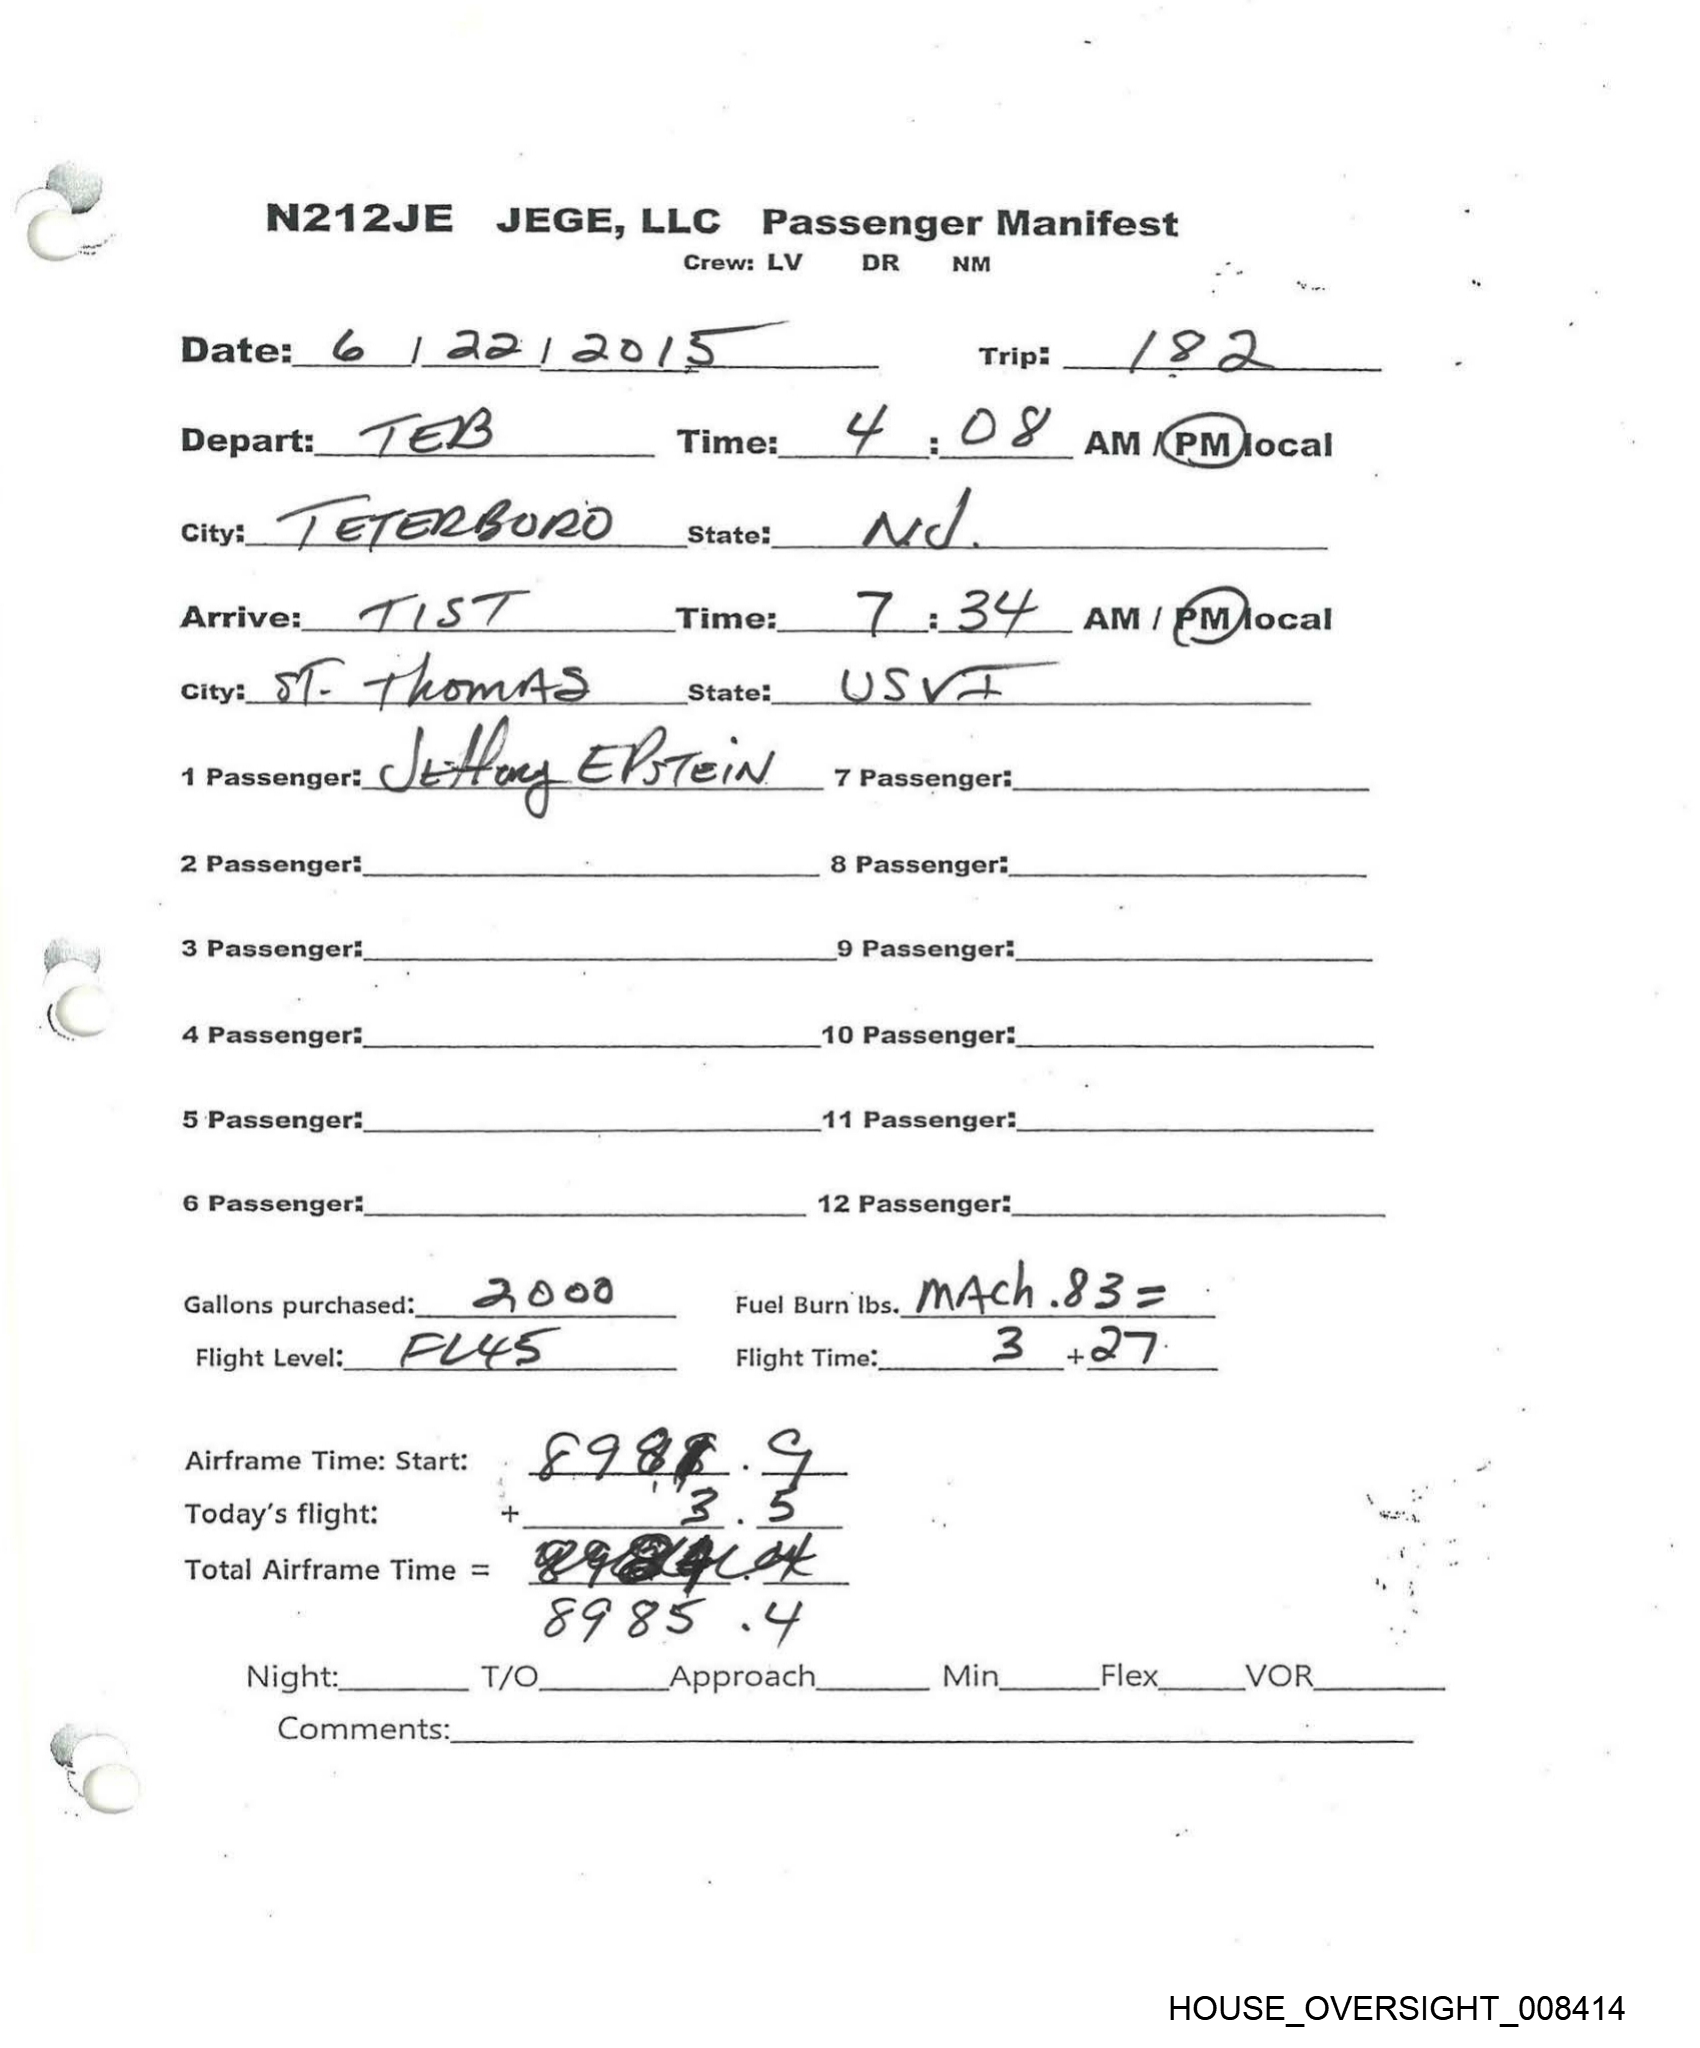 N212JE JEGE, LLC Passenger Manifest
Crew: LV DR NM
Date: 6 / 22 / 2015 Trip: 182
Depart: TEB Time: 4 : 08 AM / PM local
City: TETERBORO State: NJ.
Arrive: TIST Time: 7 : 34 AM / PM local
City: ST. ThomAS State: USVI
1 Passenger: JEffrey EPSTEIN 7 Passenger:
2 Passenger: 8 Passenger:
3 Passenger: 9 Passenger:
4 Passenger: 10 Passenger:
5 Passenger: 11 Passenger:
6 Passenger: 12 Passenger:
Gallons purchased: 2000 Fuel Burn lbs. MACh .83 =
Flight Level: FL45 Flight Time: 3 + 27
Airframe Time: Start: 8981 . 9
Today's flight: + 3 . 5
Total Airframe Time =
8985 .4
Night: T/O Approach Min Flex VOR
Comments:
HOUSE_OVERSIGHT_008414